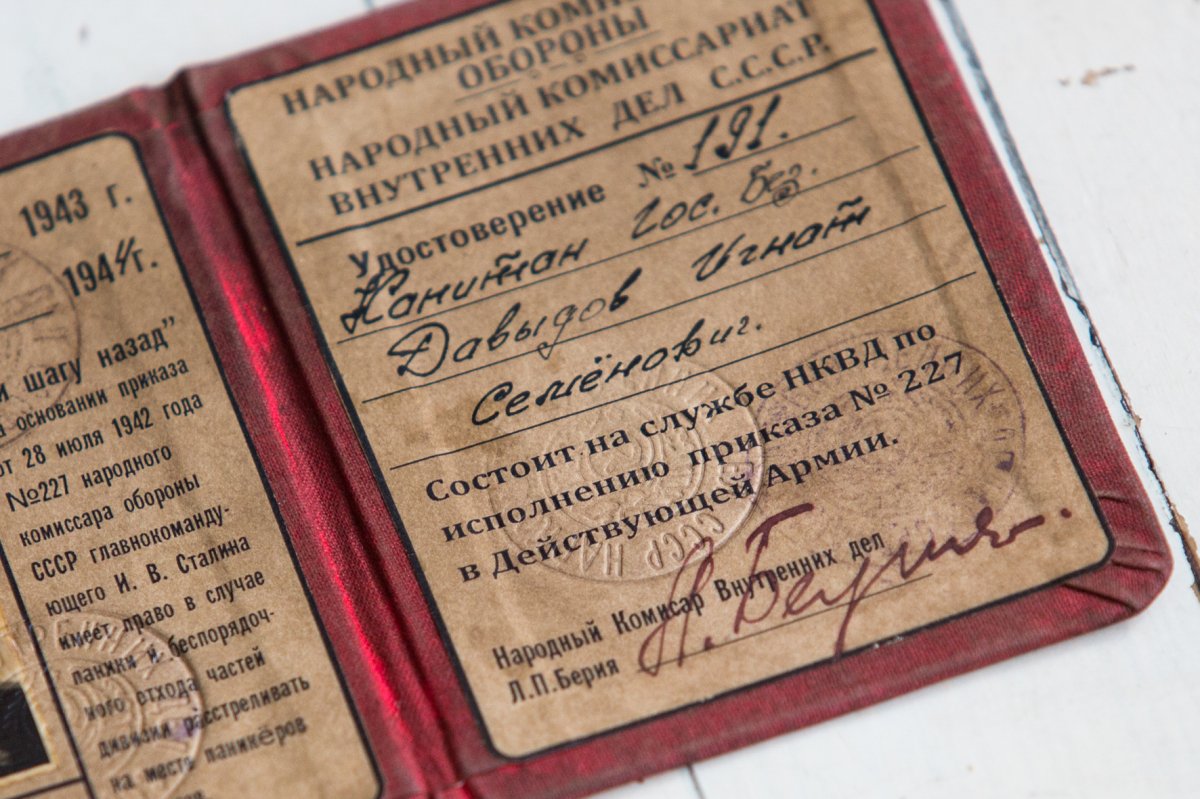 1943 г.
1944 г.
и шагу назад"
основании приказа
от 28 июля 1942 года
№227 народного
комиссара обороны
СССР главнокоманду-
ющего И. В. Сталина
имеет право в случае
паники и беспорядоч-
ного отхода частей
дивизии расстреливать
на месте паникёров
НАРОДНЫЙ
ОБОРОНЫ
НАРОДНЫЙ КОМИССАРИАТ
ВНУТРЕННИХ ДЕЛ С.С.С.Р.
Удостоверение № 191.
Капитан Гос. без.
Давыдов Игнат
Семёнович.
Состоит на службе НКВД по
исполнению приказа № 227
в Действующей Армии.
Народный Комисар Внутренних дел
Л.П.Берия
Л. Берия.